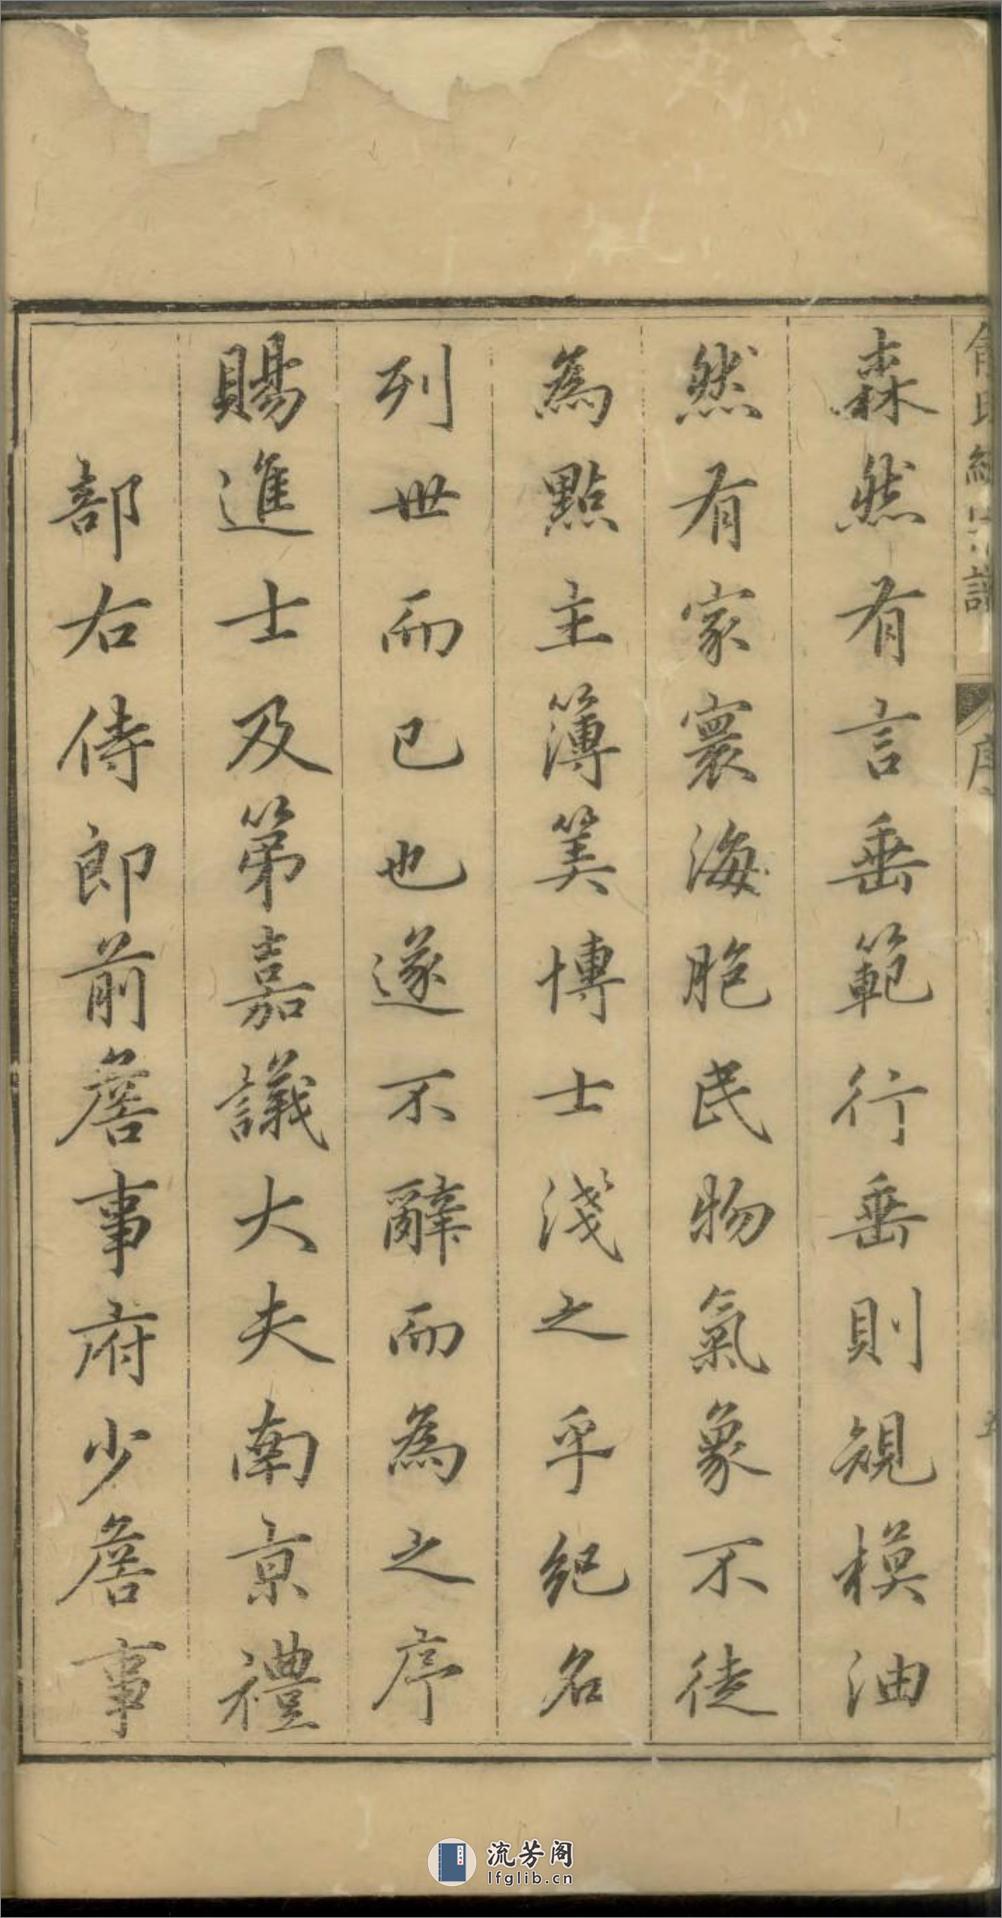 森然有言垂範行垂則規模油
然有家寰海胞民物氣象不徒
為點主簿筭博士淺之乎紀名
列世而已也遂不辭而為之序
賜進士及第嘉議大夫南京禮
部右侍郎前詹事府少詹事
序
流芳阁
lfglib.cn